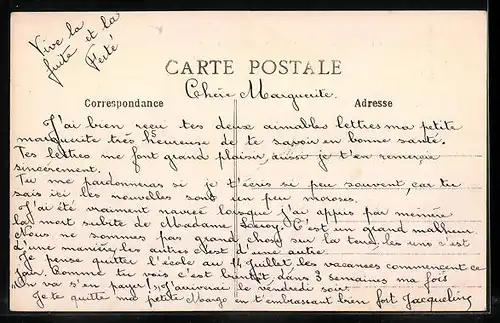 Vive la
fuite et la
Ferté
CARTE POSTALE
Chère Marguerite.
Correspondance
Adresse
J'ai bien reçu tes deux aimables lettres ma petite
marguerite très heureuse de te savoir en bonne santé.
Tes lettres me font grand plaisir, aussi je t'en remercie
sincèrement.
Tu me pardonneras si je t'écris si peu souvent, car tu
sais ici les nouvelles sont un peu moroses.
J'ai été vraiment navrée lorsque j'ai appris par mémère
la mort subite de Madame C'est un grand malheur.
Nous ne sommes pas grand chose sur la terre, les uns c'est
d'une manière, les autres c'est d'une autre.
Je pense quitter l'école au 14 juillet les vacances commencent ce
jour. Comme tu vois c'est bientôt, dans 3 semaines ma fois
"on va s'en payer!" J'arriverai le vendredi soir.
Je te quitte ma petite Margo en t'embrassant bien fort Jacqueline